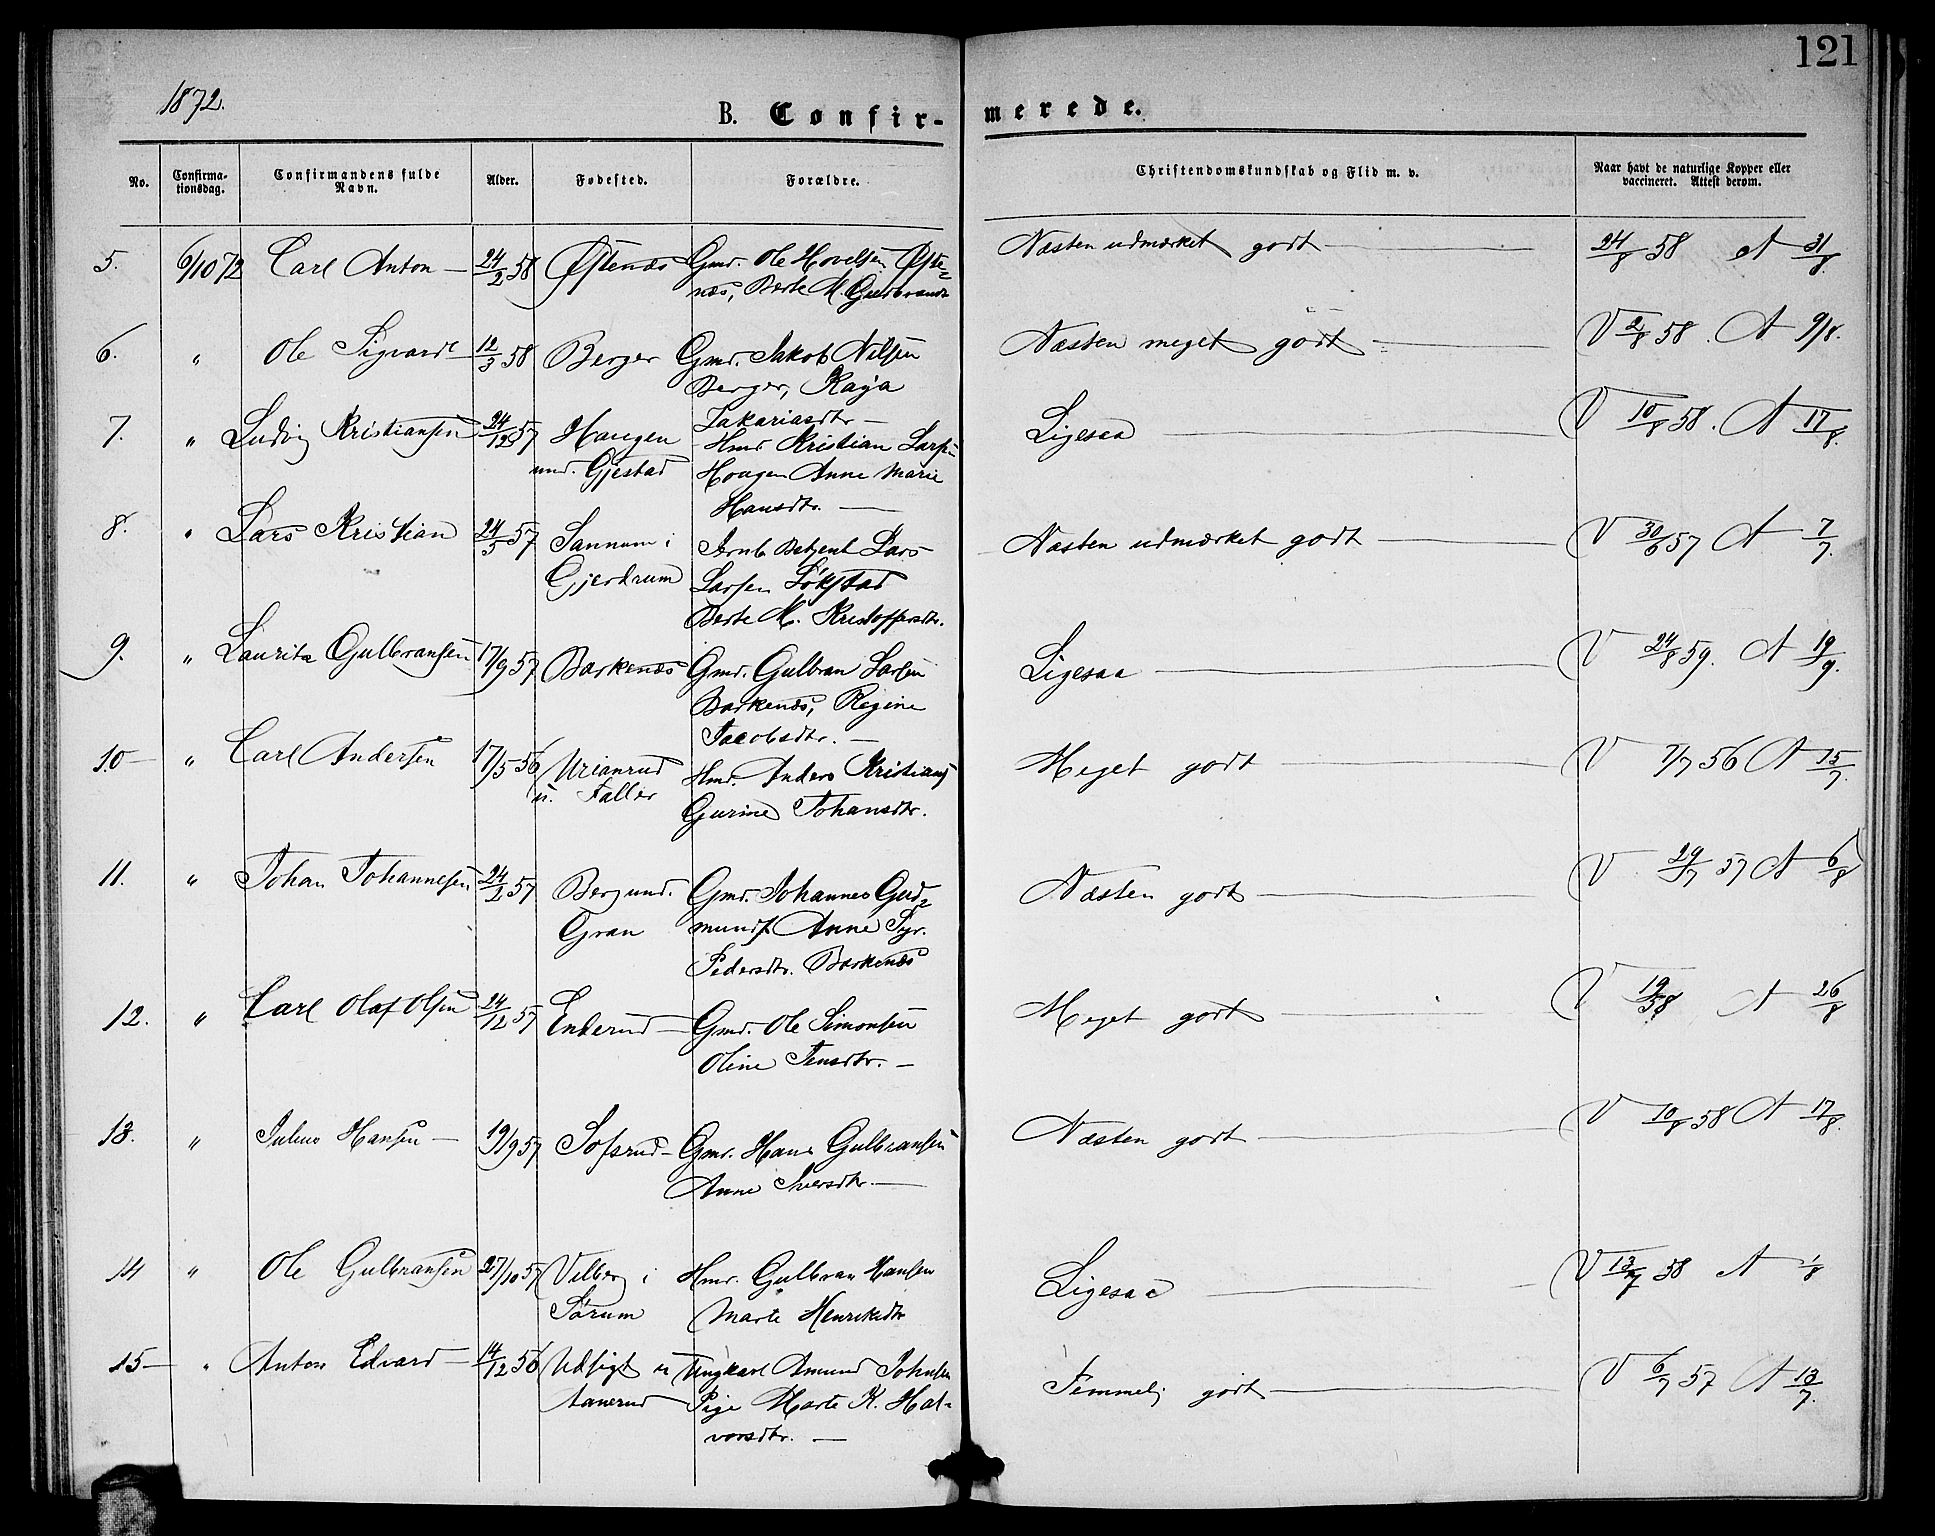 121
1872.
B. Confir-
merede.
No.
Confirma-
tionsdag.
Confirmandens fulde
Navn.
Alder.
Fødested.
Forældre.
Christendomskundskab og Flid m. v.
Naar havt de naturlige Kopper eller
vaccineret. Attest derom.
5. 6/10 72 Carl Anton — 24/2 58 Østenæs Gmd. Ole Hovelsen Øste- Næsten udmærket godt — 24/8 58 A 31/8.
næs, Berte M. Gudbrandt
6. " Ole Sigvard — 12/3 58 Berger Gmd. Jakob Nilsen Næsten meget godt — V 2/8 58. A 9/8.
Berger, Kaja
Zakariasdtr —
7. " Ludvig Kristiansen 24/12 57 Haugen Hmd Kristian Larsen Ligesaa — V 10/8 58. A 17/8.
und. Gjestad Haagen Anne Marie
Hansdtr. —
8. " Lars Kristian 24/5 57 Sannum i Jernb Betjent Lars Næsten udmærket godt — V 30/6 57 A 7/7.
Gjerdrum Larsen Løkstad
Berte M. Kristoffersdtr.
9. " Lauritz Gulbransen 17/9 57 Barkenæs Gmd. Gulbran Larsen Ligesaa — V 24/8 59. A 19/9.
Barkenæs, Regine
Jacobsdtr. —
10 — " Carl Andersen 17/5 56 Urianrud Hmd. Anders Kristians Meget godt — V 7/7 56 A 15/7.
u. Faller Gurine Johansdtr.
11. " Johan Johannesen 24/2 57 Berg und. Gmd. Johannes Gud- Næsten godt — V 29/7 57 A 6/8
Gran munds. Anne Syr.
Pedersdtr. Barkenæs
12. " Carl Olaf Olsen 24/12 57 Enderud — Gmd. Ole Simonsen Meget godt — V 19/58 A 26/8
Oline Jensdtr. —
13. " Julius Hansen — 19/9 57 Sofsrud — Gmd. Hans Gulbransen Næsten godt — V 10/8 58 A 17/8.
Anne Iversdtr. —
14 " Ole Gulbransen 27/10 57 Vilberg i Hmd. Gulbran Hansen Ligesaa — V 13/7 58 A 1/8
Sørum Marte Henriksdtr
15 — " Anton Edvard — 14/12 56 Udsigt u Ungkarl Amund Johnsen Temmelig godt — V 6/7 57 A 13/7.
Aanerud — Pige Marte K. Hal-
vorsdtr. —